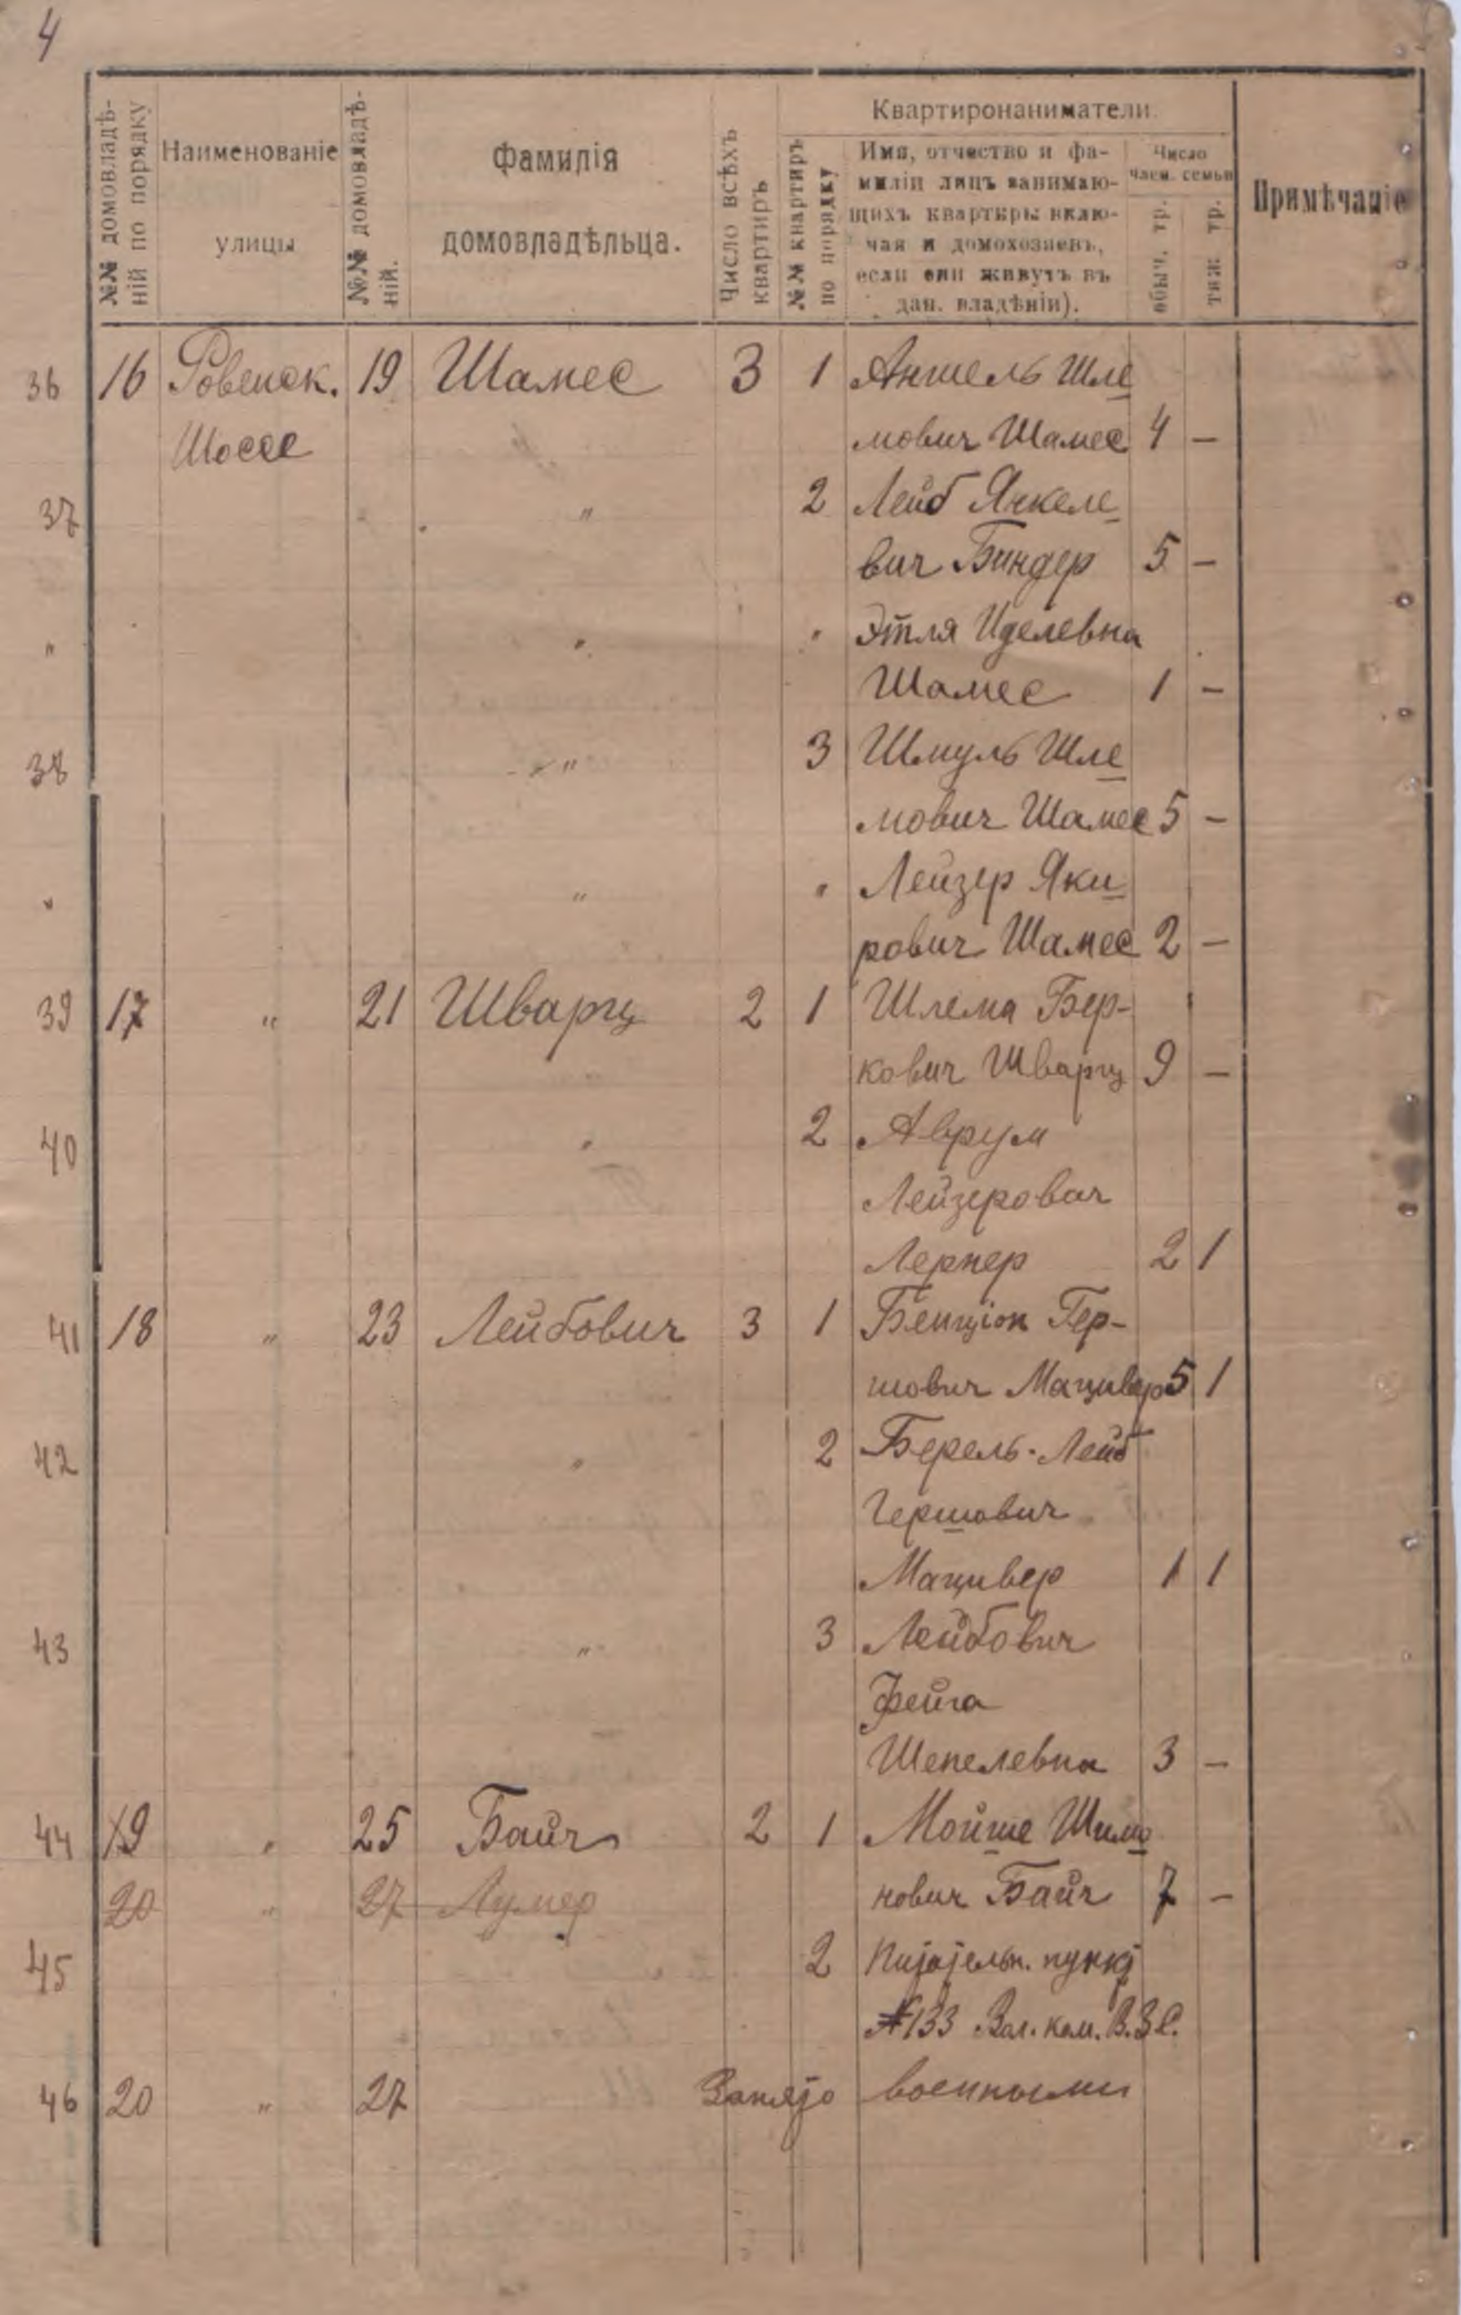 4
№№ домовладѣ-
ній по порядку
Наименованіе
улицы
№№ домовладѣ-
ній.
Фамилія
домовладѣльца.
Число всѣхъ
квартиръ
Квартиронаниматели.
№№ квартиръ
по порядку
Имя, отчество и фа-
миліи лицъ занимаю-
щихъ квартиры вклю-
чая и домохозяевъ,
если они живутъ въ
дан. владѣніи).
Число
член. семьи
обыч. тр.
тяж. тр.
Примѣчаніе
36 16 Ровенск. 19 Шамес 3 1 Аншель Шле
Шоссе мович Шамес 4 —
37 " 2 Лейб Янкеле
вич Биндер 5 —
" " " Этля Иделевна
Шамес 1 —
38 " 3 Шмуль Шле
мович Шамес 5 —
" " " Лейзер Яки
рович Шамес 2 —
39 17 " 21 Шварц 2 1 Шлема Бер-
кович Шварц 9 —
40 " 2 Аврум
Лейзерович
Лернер 2 1
41 18 " 23 Лейбович 3 1 Бенціон Гер-
шович Мацивер 5 1
42 " 2 Берель-Лейб
Гершович
Мацивер 1 1
43 " 3 Лейбович
Фейга
Шепелевна 3 —
44 19 " 25 Байч 2 1 Мойше Шимо
20 " 27 Лумер нович Байч 7 —
45 2 Питательн. пункт
№133 Вол. ком. В.З.С.
46 20 " 27 Занято военными